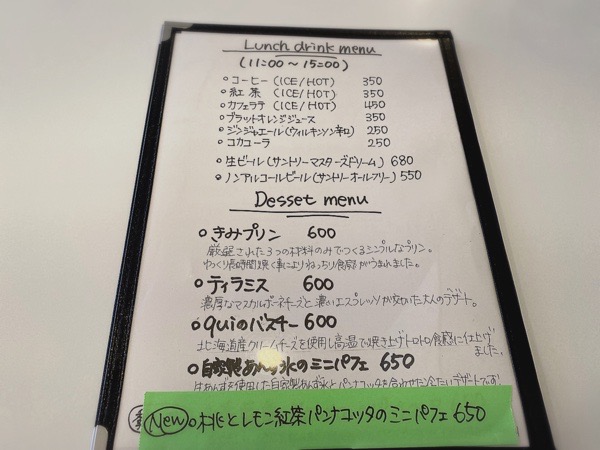 Lunch drink menu
(11:00～15:00)
○コーヒー(ICE/HOT) 350
○紅茶(ICE/HOT) 350
○カフェラテ(ICE/HOT) 450
○ブラッドオレンジジュース 350
○ジンジャエール(ウィルキンソン辛口) 250
○コカコーラ 250
○生ビール(サントリーマスターズドリーム) 680
○ノンアルコールビール(サントリーオールフリー) 550
Desset menu
○きみプリン 600
厳選された3つの材料のみでつくるシンプルなプリン。
ゆっくり長時間焼く事によりねっちり食感がうまれました。
○ティラミス 600
濃厚なマスカルポーネチーズと濃いエスプレッソが効いた大人のデザート。
○quiのバスチー 600
北海道産クリームチーズを使用し高温で焼き上げトロトロ食感に仕上げました。
○自家製あんず氷のミニパフェ 650
生あんずを使用した自家製あんず氷とパンナコッタを合わせた冷たいデザートです!
New ○桃とレモン紅茶パンナコッタのミニパフェ 650